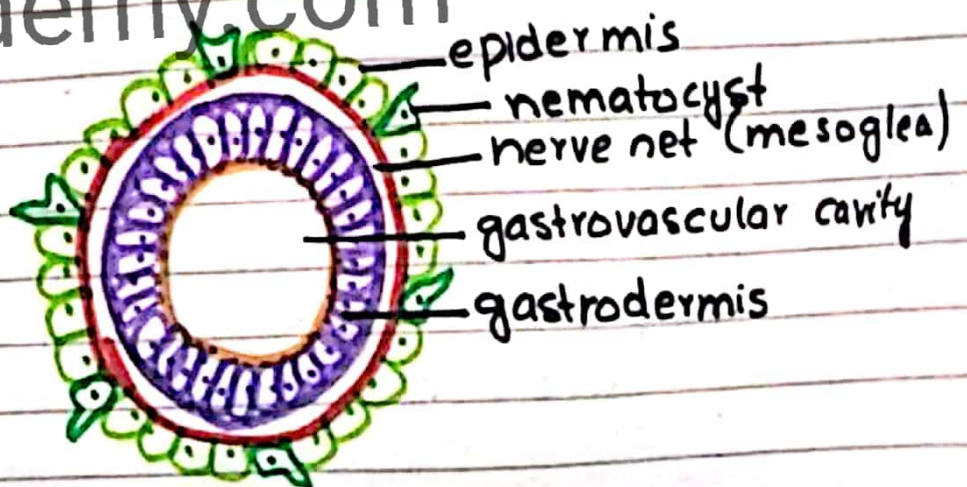 demy.com
epidermis
nematocyst
nerve net (mesoglea)
gastrovascular cavity
gastrodermis